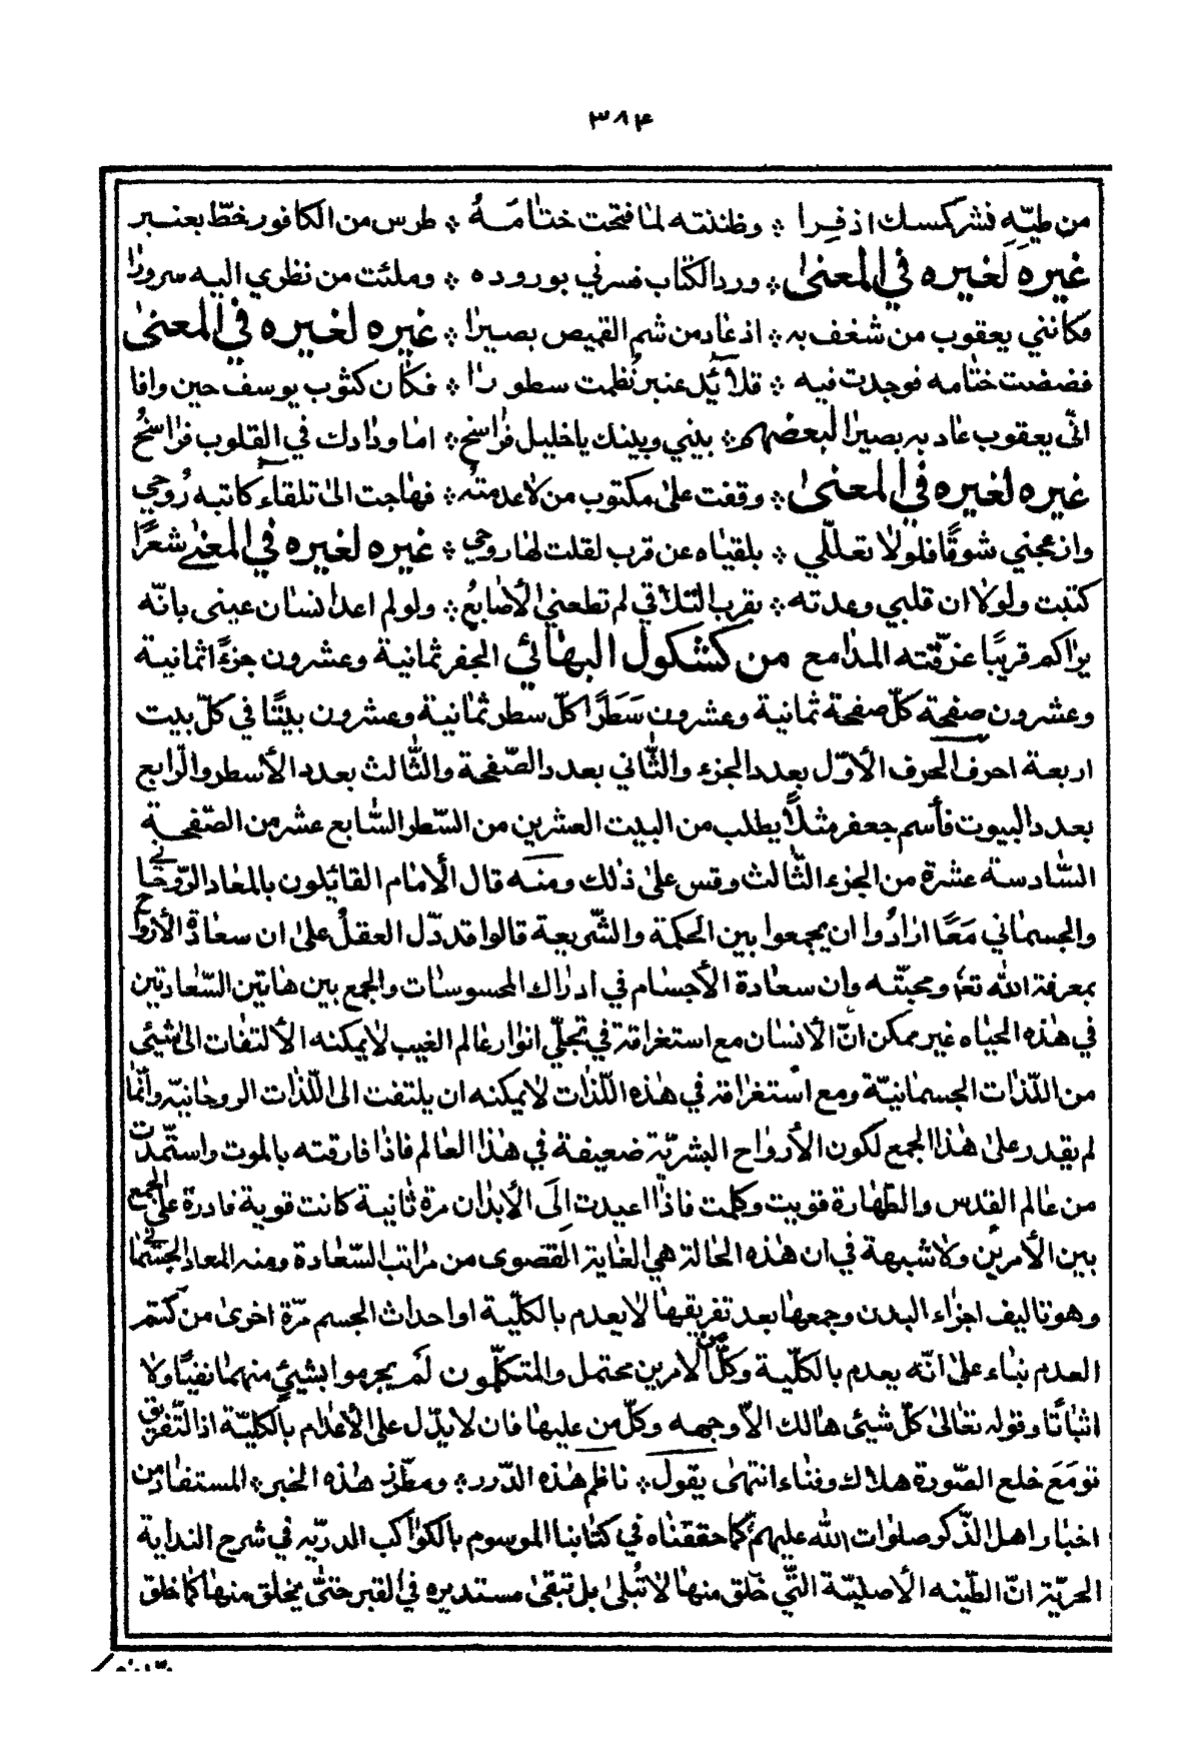 ٣٨٤
من طيّه نشر كمسك اذفرا ۞ وظننته لما فتحت ختامه ۞ طرس من الكافور خطّ بعنبر
غيره لغيره في المعنى ۞ ورد الكتاب فسرني بوروده ۞ وملئت من نظري اليه سرورا
فكانني يعقوب من شغف به ۞ اذ عاد من شم القميص بصيرا ۞ غيره لغيره في المعنى
فضضت ختامه فوجدت فيه ۞ قلائد عنبر نُظمت سطورا ۞ فكان كثوب يوسف حين وافا
الى يعقوب عاد به بصيرا لبعضهم ۞ بيني وبينك يا خليل فراسخ ۞ اما ودادك في القلوب فراسخُ
غيره لغيره في المعنى ۞ وقفت على مكتوب من لا عدمته ۞ فهاجت الى تلقاء كاتبه رُوحي
وازعجني شوقًا فلولا تعللّي ۞ بلقياه عن قرب لقلت لها روحي ۞ غيره لغيره في المعنى شعرًا
كتبت ولولا ان قلبي وعدته ۞ بقرب التلاقي لم تطعني الأصابعُ ۞ ولو لم اعد انسان عيني بانّه
يراكم قريبًا غرّقته المدامع من كشكول البهائي الجفر ثمانية وعشرون جزءًا ثمانية
وعشرون صفحة كلّ صفحة ثمانية وعشرون سَطَرًا كلّ سطر ثمانية وعشرون بيتًا في كلّ بيت
اربعة احرف الحرف الأوّل بعدد الجزء والثّاني بعدد الصّفحة والثّالث بعدد الأسطر والرّابع
بعدد البيوت فأسم جعفر مثلًا يطلب من البيت العشرين من السّطر السّابع عشر من الصّفحة
السّادسة عشرة من الجزء الثّالث وقس على ذلك ومنه قال الأمام القائلون بالمعاد الرّوحاني
والجسماني مَعًا ارادُوا ان يجمعوا بين الحكمة والشّريعة قالوا قد دّل العقلُ على ان سعادة الأرواح
بمعرفة الله تعٰ ومحبّته وان سعادة الأجسام في ادراك المحسوسات والجمع بين هاتين السّعادتين
في هذه الحياه غير ممكن انّ الأنسان مع استغراقه في تجلّي انوار عالم الغيب لا يمكنه الألتفات الى شيئي
من اللّذات الجسمانيّة ومع استغراقه في هذه اللّذات لا يمكنه ان يلتفت الى اللّذات الروحانيّه وانّما
لم يقدر على هذا الجمع لكون الأرواح البشريّة ضعيفة في هذا العالم فاذا فارقته بالموت واستمّدت
من عالم القدس والطّهارة قويت وكملت فاذا اعيدت إلَى الأبدان مرة ثانية كانت قوية قادرة على الجمع
بين الأمرين ولا شبهة في ان هذه الحالة هي الغاية القصوى من مراتب السّعادة ومنه المعاد الجسماني
وهو تاليف اجزاء البدن وجمعها بعد تفريقها لا يعدم بالكلّية او احداث الجسم مرّة اخرى من كتم
العدم بناء على انّه يعدم بالكلّية وكلّ من الامرين محتمل والمتكلّمون لَم يجزموا بشيئي منهما نفيًا ولا
اثباتًا وقوله تعالى كلّ شيئي هالك الاّ وجهه وكلّ من عليها فان لا يدّل على الأعدام بالكليّة اذ التّفريق
نومَعَ خلع الصّورة هلاك وفناء انتهى يقول ۞ ناظم هذه الدّرر ۞ ومطّرز هذه الخبر ۞ المستفاد من
اخبار اهل الذّكر صلوات الله عليهم كما حققناه في كتابنا الموسوم بالكواكب الدريّه في شرح النداية
الحريّة انّ الطّينه الأصليّة التّي خلق منها لا تُبلى بل تبقى مستديره في القبر حتّى يخلق منها كما خلق